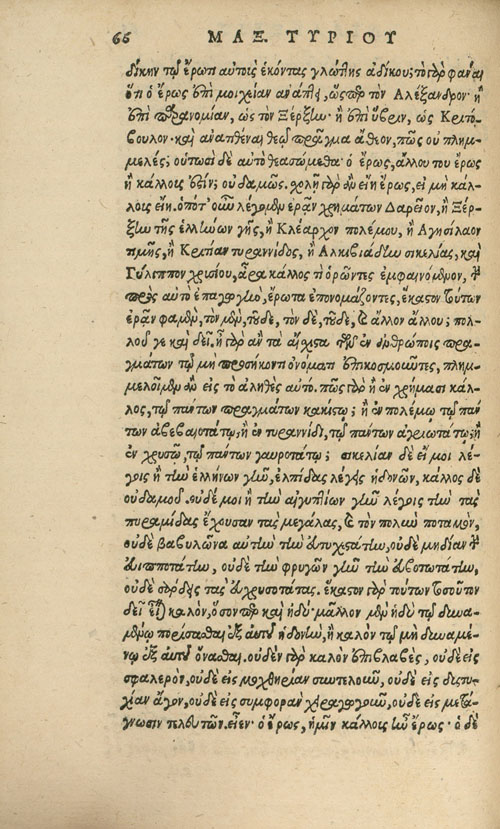 66 ΜΑΞ. ΤΥΡΙΟΥ
δίκην τῷ ἔρωτι αὐτοῖς ἑκόντας γλώττης ἀδίκου; τὸ γὰρ φάναι
ὅτι ὁ ἔρως ἐπὶ μοιχείαν ἀναπτεῖ, ὥσπερ τὸν Ἀλέξανδρον· ἢ
ἐπὶ παρανομίαν, ὡς τὸν Ξέρξην· ἢ ἐπὶ ὕβριν, ὡς Κριτό-
βουλον· καὶ ἀναπθέναι θεῷ πρᾶγμα ἄθεον, πῶς οὐ πλημ-
μελές; οὑτωσὶ δὲ αὐτὸ θεασώμεθα· ὁ ἔρως, ἄλλου του ἔρως
ἢ κάλλοις ἐστίν; οὐδαμῶς. σχολῇ γὰρ ἂν εἴη ἔρως, εἰ μὴ κάλ-
λοις εἴη. ὁπότ' οὖν λέγομεν ἐρᾶν χρημάτων Δαρεῖον, ἢ Ξέρ-
ξην τῆς ἑλλήνων γῆς, ἢ Κλέαρχον πολέμου, ἢ Ἀγησίλαον
τιμῆς, ἢ Κριτίαν τυραννίδος, ἢ Ἀλκιβιάδην σικελίας, καὶ
Γύλιππον χρυσίου, ἆρα κάλλος τι ὁρῶντες ἐμφαινόμενον, καὶ
πρὸς αὐτὸ ἐπαγωγὴν, ἔρωτα ἐπονομάζοντες, ἕκαστον τούτων
ἐρᾶν φαμὲν, τὸν μὲν, τοῦδε, τὸν δὲ, τοῦδε, καὶ ἄλλον ἄλλου; πολ-
λοῦ γε καὶ δεῖ, ἦ γὰρ ἂν τὰ αἴσχιστα τῶν ἐν ἀνθρώποις πρα-
γμάτων τῷ μὴ προσήκοντι ὀνόματι ἐπικοσμοιῶντες, πλημ-
μελοῖμεν ἂν εἰς τὸ ἀληθὲς αὐτό. πῶς γὰρ ἢ ἐν χρήμασι κάλ-
λος, τῷ πάντων πραγμάτων κακίστῳ; ἢ ἐν πολέμῳ τῷ πάν
των ἀβεβαιοτάτῳ; ἢ ἐν τυραννίδι, τῷ πάντων ἀγριωτάτῳ; ἢ
ἐν χρυσῷ, τῷ πάντων γαυροτάτῳ; σικελίαν δὲ εἴ μοι λέ-
γοις ἢ τὴν ἑλλήνων γῆν, ἐλπίδας λέγεις ἡδονῶν, κάλλος δὲ
οὐδαμοῦ. οὐδέ μοι ἢ τὴν αἰγυπτίων γῆν λέγοις τὴν τὰς
πυραμίδας ἔχουσαν τὰς μεγάλας, καὶ τὸν πολὺν ποταμὸν,
οὐδὲ βαβυλῶνα αὐτὴν τὴν εὐτυχεστάτην, οὐδὲ μηδίαν τὴν
εὐιπποτάτην, οὐδὲ τὴν φρυγῶν γῆν τὴν εὐβοτωτάτην,
οὐδὲ σάρδεις τὰς εὐχρυσοτάτας. ἕκαστον γὰρ τούτων τοσοῦτον
δεῖ εἶναι καλὸν, ὅσονπερ καὶ ἡδύ· μᾶλλον μὲν ἡδὺ τῷ δυνα-
μένῳ πορίσασθαι ἐξ αὐτοῦ ἡδονὴν, ἢ καλὸν τῷ μὴ δυναμέ-
νῳ ἐξ αὐτοῦ ὄνασθαι. οὐδὲν γὰρ καλὸν ἐπιβλαβὲς, οὐδὲ εἰς
σφαλερὸν, οὐδὲ εἰς μοχθηρίαν συντελοῦν, οὐδὲ εἰς δυστυ-
χίαν ἄγον, οὐδὲ εἰς συμφορὰν χειραγωγοῦν, οὐδὲ εἰς μετά-
γνωσιν τελευτῶν. εἶεν· ὁ ἔρως, ἡμῖν κάλλοις ἦν ἔρως· ὁ δὲ